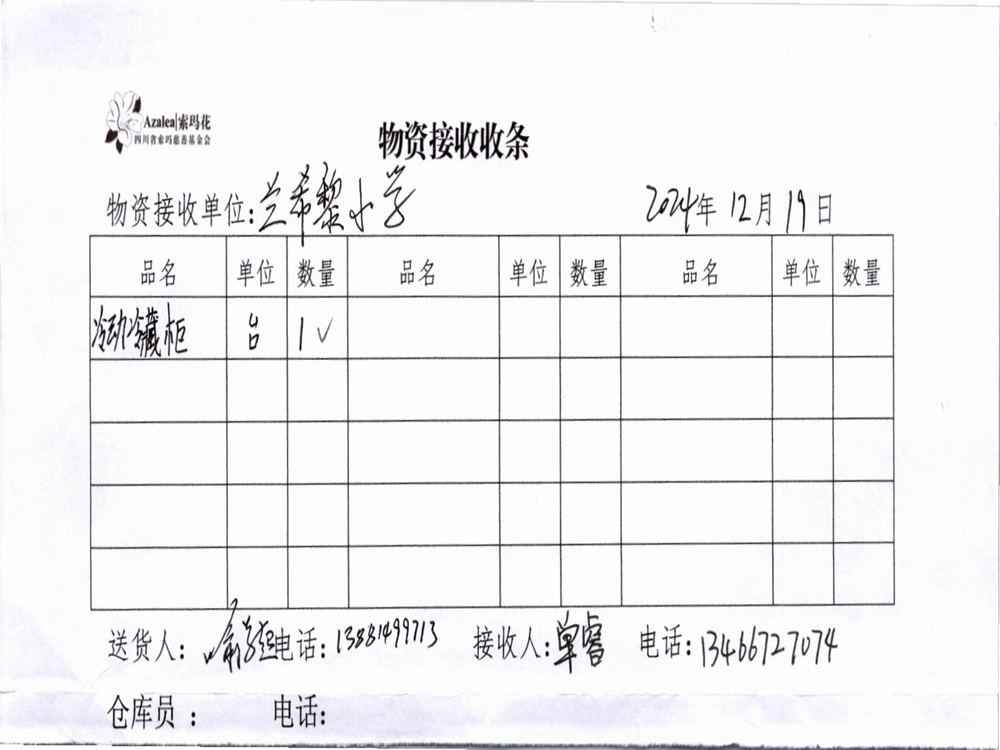 Azalea|索玛花
四川省索玛慈善基金会
物资接收收条
物资接收单位:兰希黎小学 2024年12月19日
品名 单位 数量 品名 单位 数量 品名 单位 数量
冷动冷藏柜 台 1✓
送货人: 电话:13881499713 接收人:单睿 电话:13466727074
仓库员: 电话: